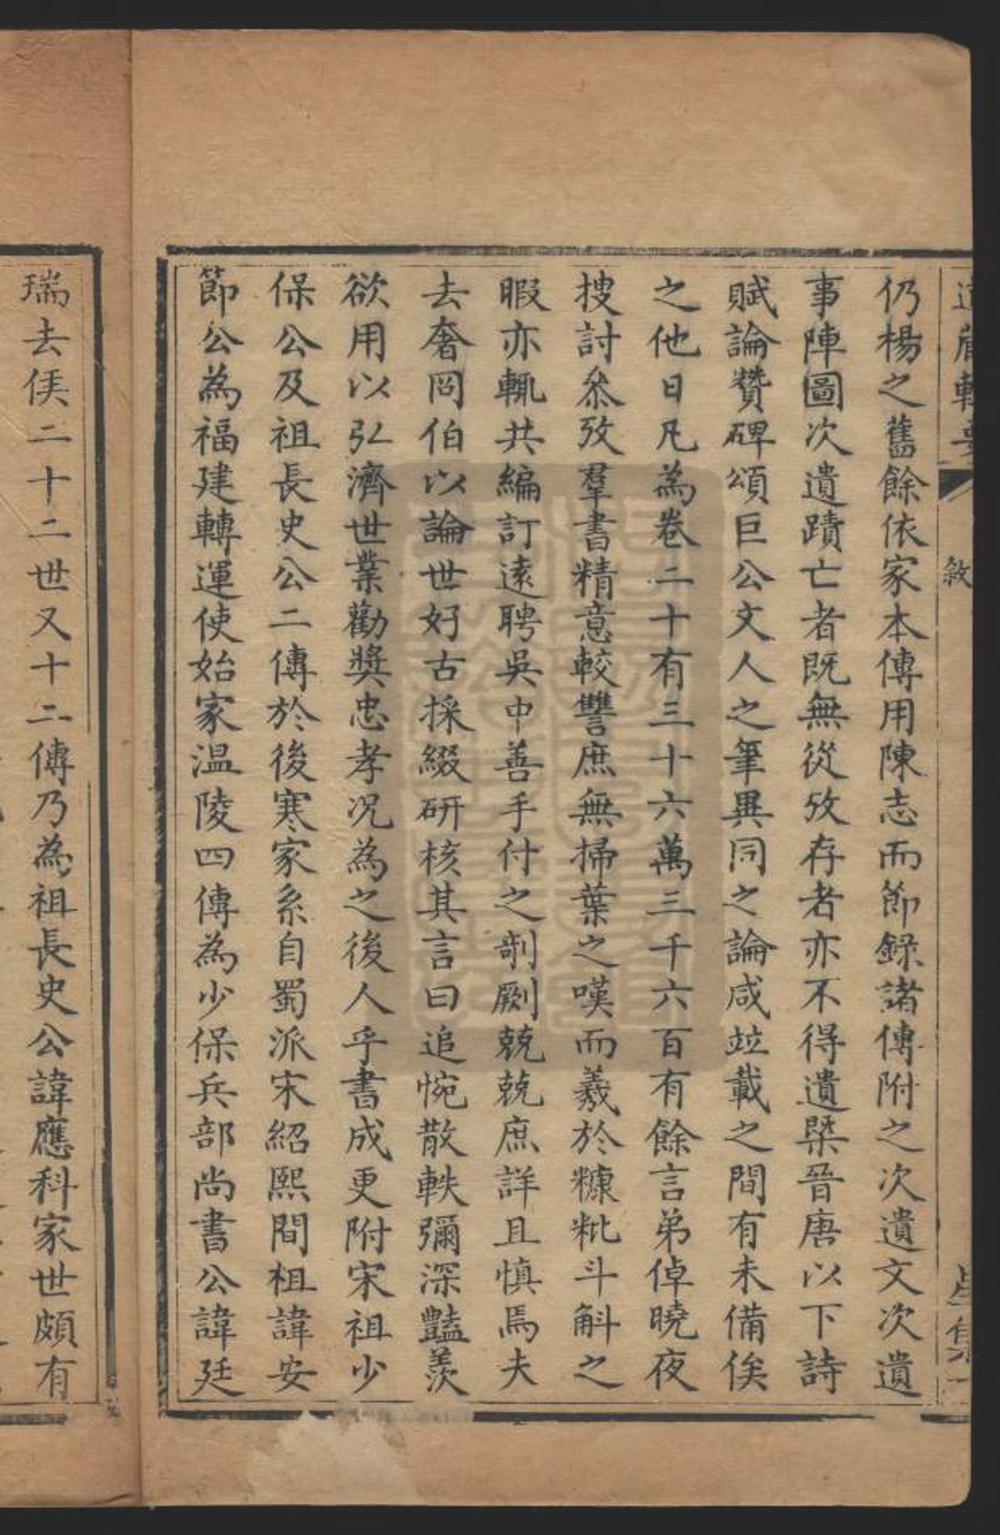 道藏輯要
敘
星集一
仍楊之舊餘依家本傳用陳志而節錄諸傳附之次遺文次遺
事陣圖次遺蹟亡者既無從攷存者亦不得遺槩晉唐以下詩
賦論贊碑頌巨公文人之筆異同之論咸竝載之間有未備俟
之他日凡為卷二十有三十六萬三千六百有餘言弟倬曉夜
搜討叅攷羣書精意較讐庶無掃葉之嘆而羲於糠粃斗斛之
暇亦輒共編訂逺聘吳中善手付之剞劂兢兢庶詳且慎焉夫
去奢岡伯以論世好古採綴研核其言曰追惋散軼彌深豔羨
欲用以弘濟世業勸奬忠孝况為之後人乎書成更附宋祖少
保公及祖長史公二傳於後寒家系自蜀派宋紹熙間祖諱安
節公為福建轉運使始家温陵四傳為少保兵部尚書公諱廷
瑞去侯二十二世又十二傳乃為祖長史公諱應科家世頗有